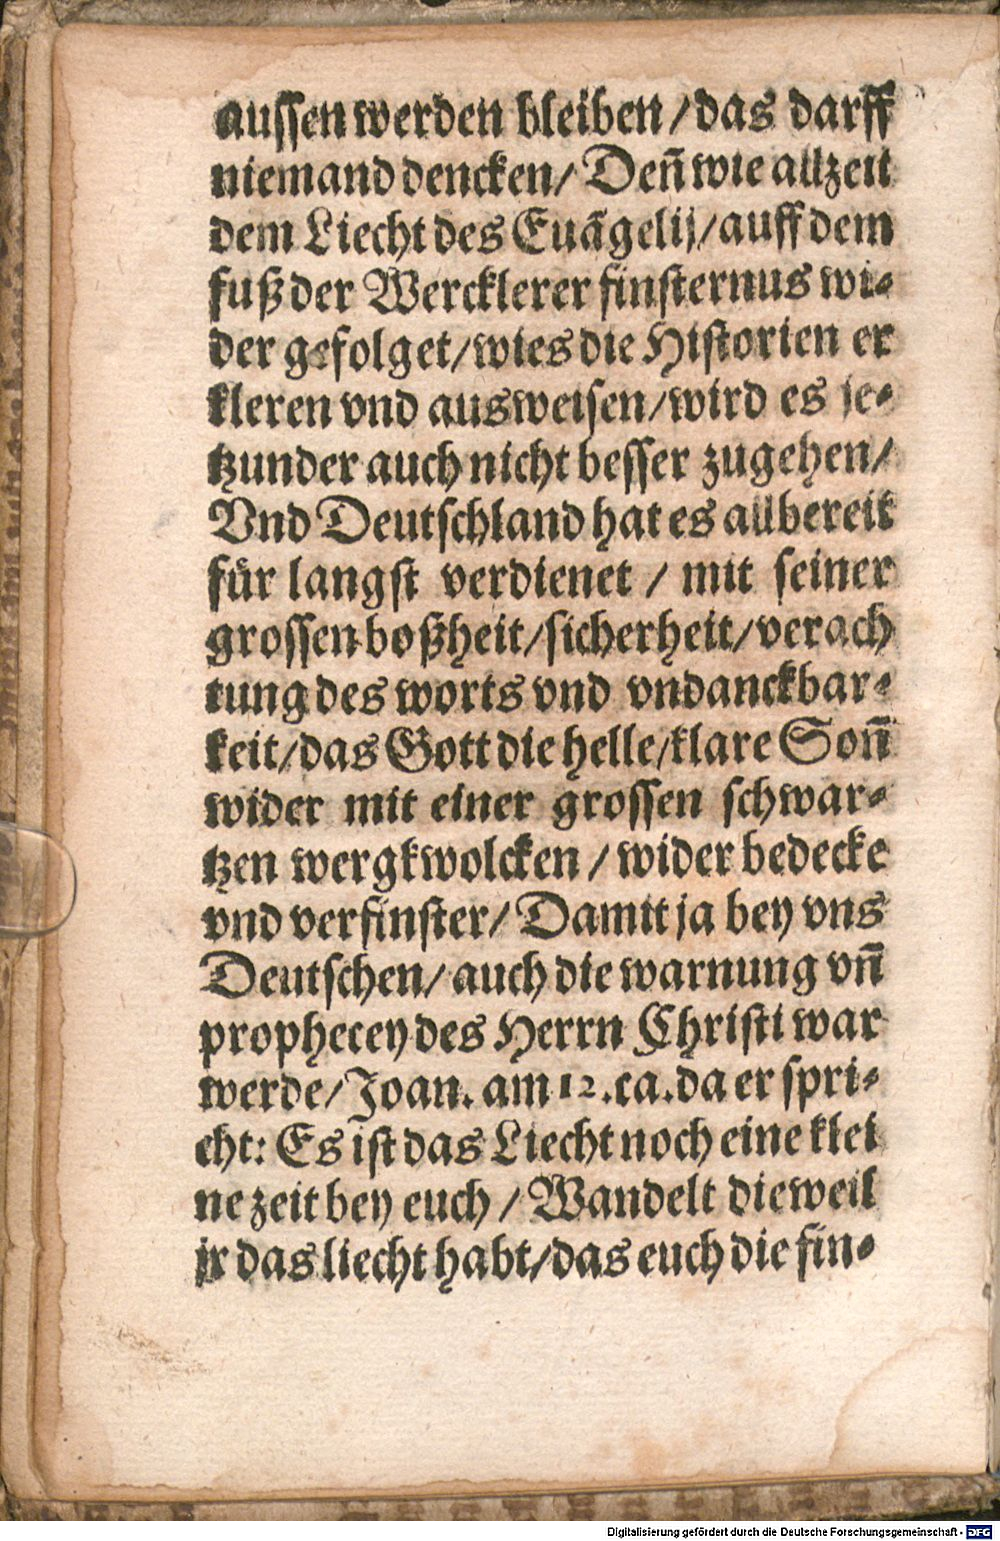 aussen werden bleiben / das darff
niemand dencken / Deñ wie allzeit
dem Liecht des Euãgelij / auff dem
fuß der Wercklerer finsternus wi-
der gefolget / wies die Historien er
kleren vnd ausweisen / wird es je-
tzunder auch nicht besser zugehen /
Vnd Deutschland hat es allbereit
für langst verdienet / mit seiner
grossen boßheit / sicherheit / verach
tung des worts vnd vndanckbar-
keit / das Gott die helle / klare Soñ
wider mit einer grossen schwar-
tzen wergkwolcken / wider bedecke
vnd verfinster / Damit ja bey vns
Deutschen / auch die warnung vñ
prophecey des Herrn Christi war
werde / Joan. am 12. ca. da er spri-
cht: Es ist das Liecht noch eine klei
ne zeit bey euch / Wandelt dieweil
jr das liecht habt / das euch die fin-
Digitalisierung gefördert durch die Deutsche Forschungsgemeinschaft - DFG